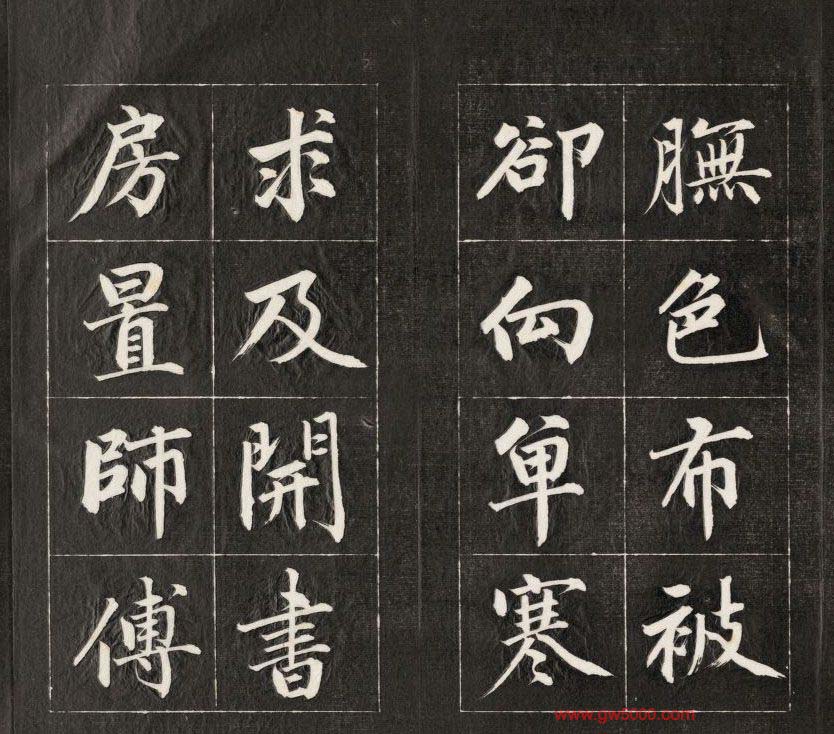 膴色布被
卻向单寒
求及開書
房置師傅
www.gw5000.com